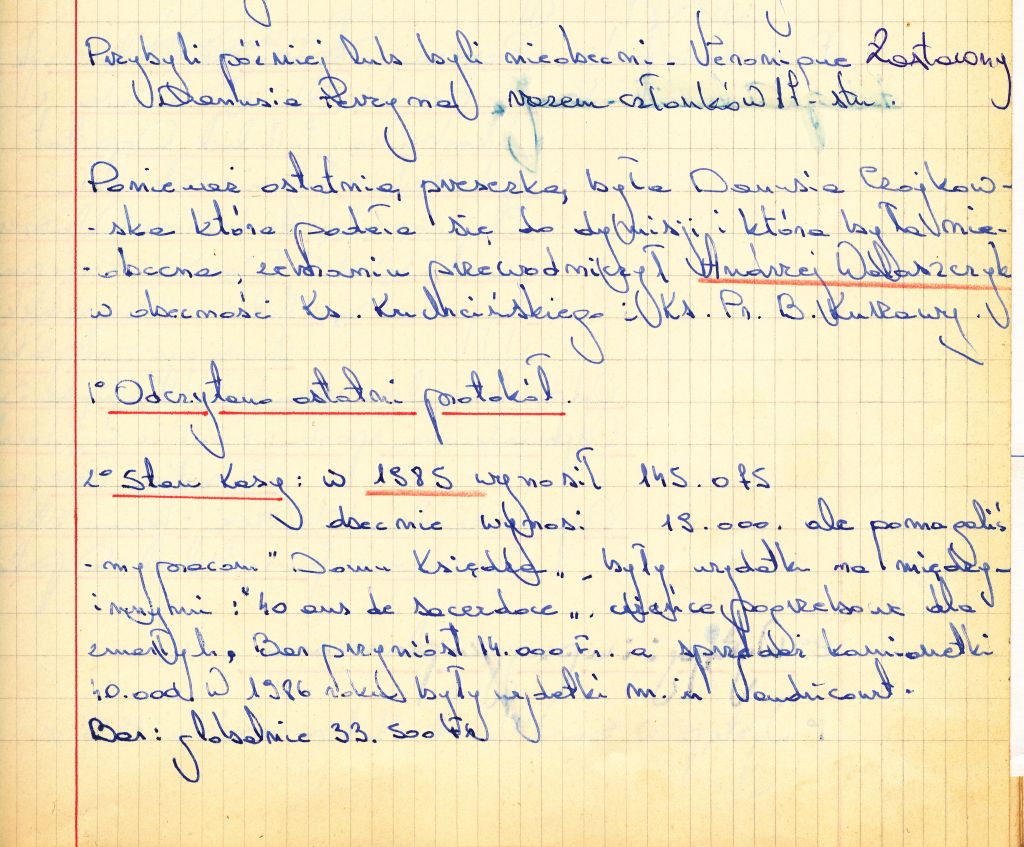 Przybyli później lub byli nieobecni - Veronique Zostawny
Danusia Peryna, razem - członków 17-stu.
Ponieważ ostatnią prezeską była Danusia Czajkow-
-ska która podała się do dymisji i która była nie-
-obecna, zebraniu przewodniczył Andrzej Walaszczyk
w obecności Ks. Kruchcińskiego i Ks. Pr. B. Kurzawy.
1° Odczytano ostatni protokół.
2° Stan Kasy: w 1985 wynosił 145.075
obecnie wynosi 19.000. ale pomagaliś
-my pracom "Domu Księdza„ - były wydatki na między-
innymi: "40 ans de sacerdoce„. wieńce pogrzebowe dla
zmarłych, Bar przyniósł 14.000 Fr. a sprzedaż kamionetki
40.000 W 1986 roku były wydatki m.in Vaudricourt.
Bar: globalnie 33.500 Fr